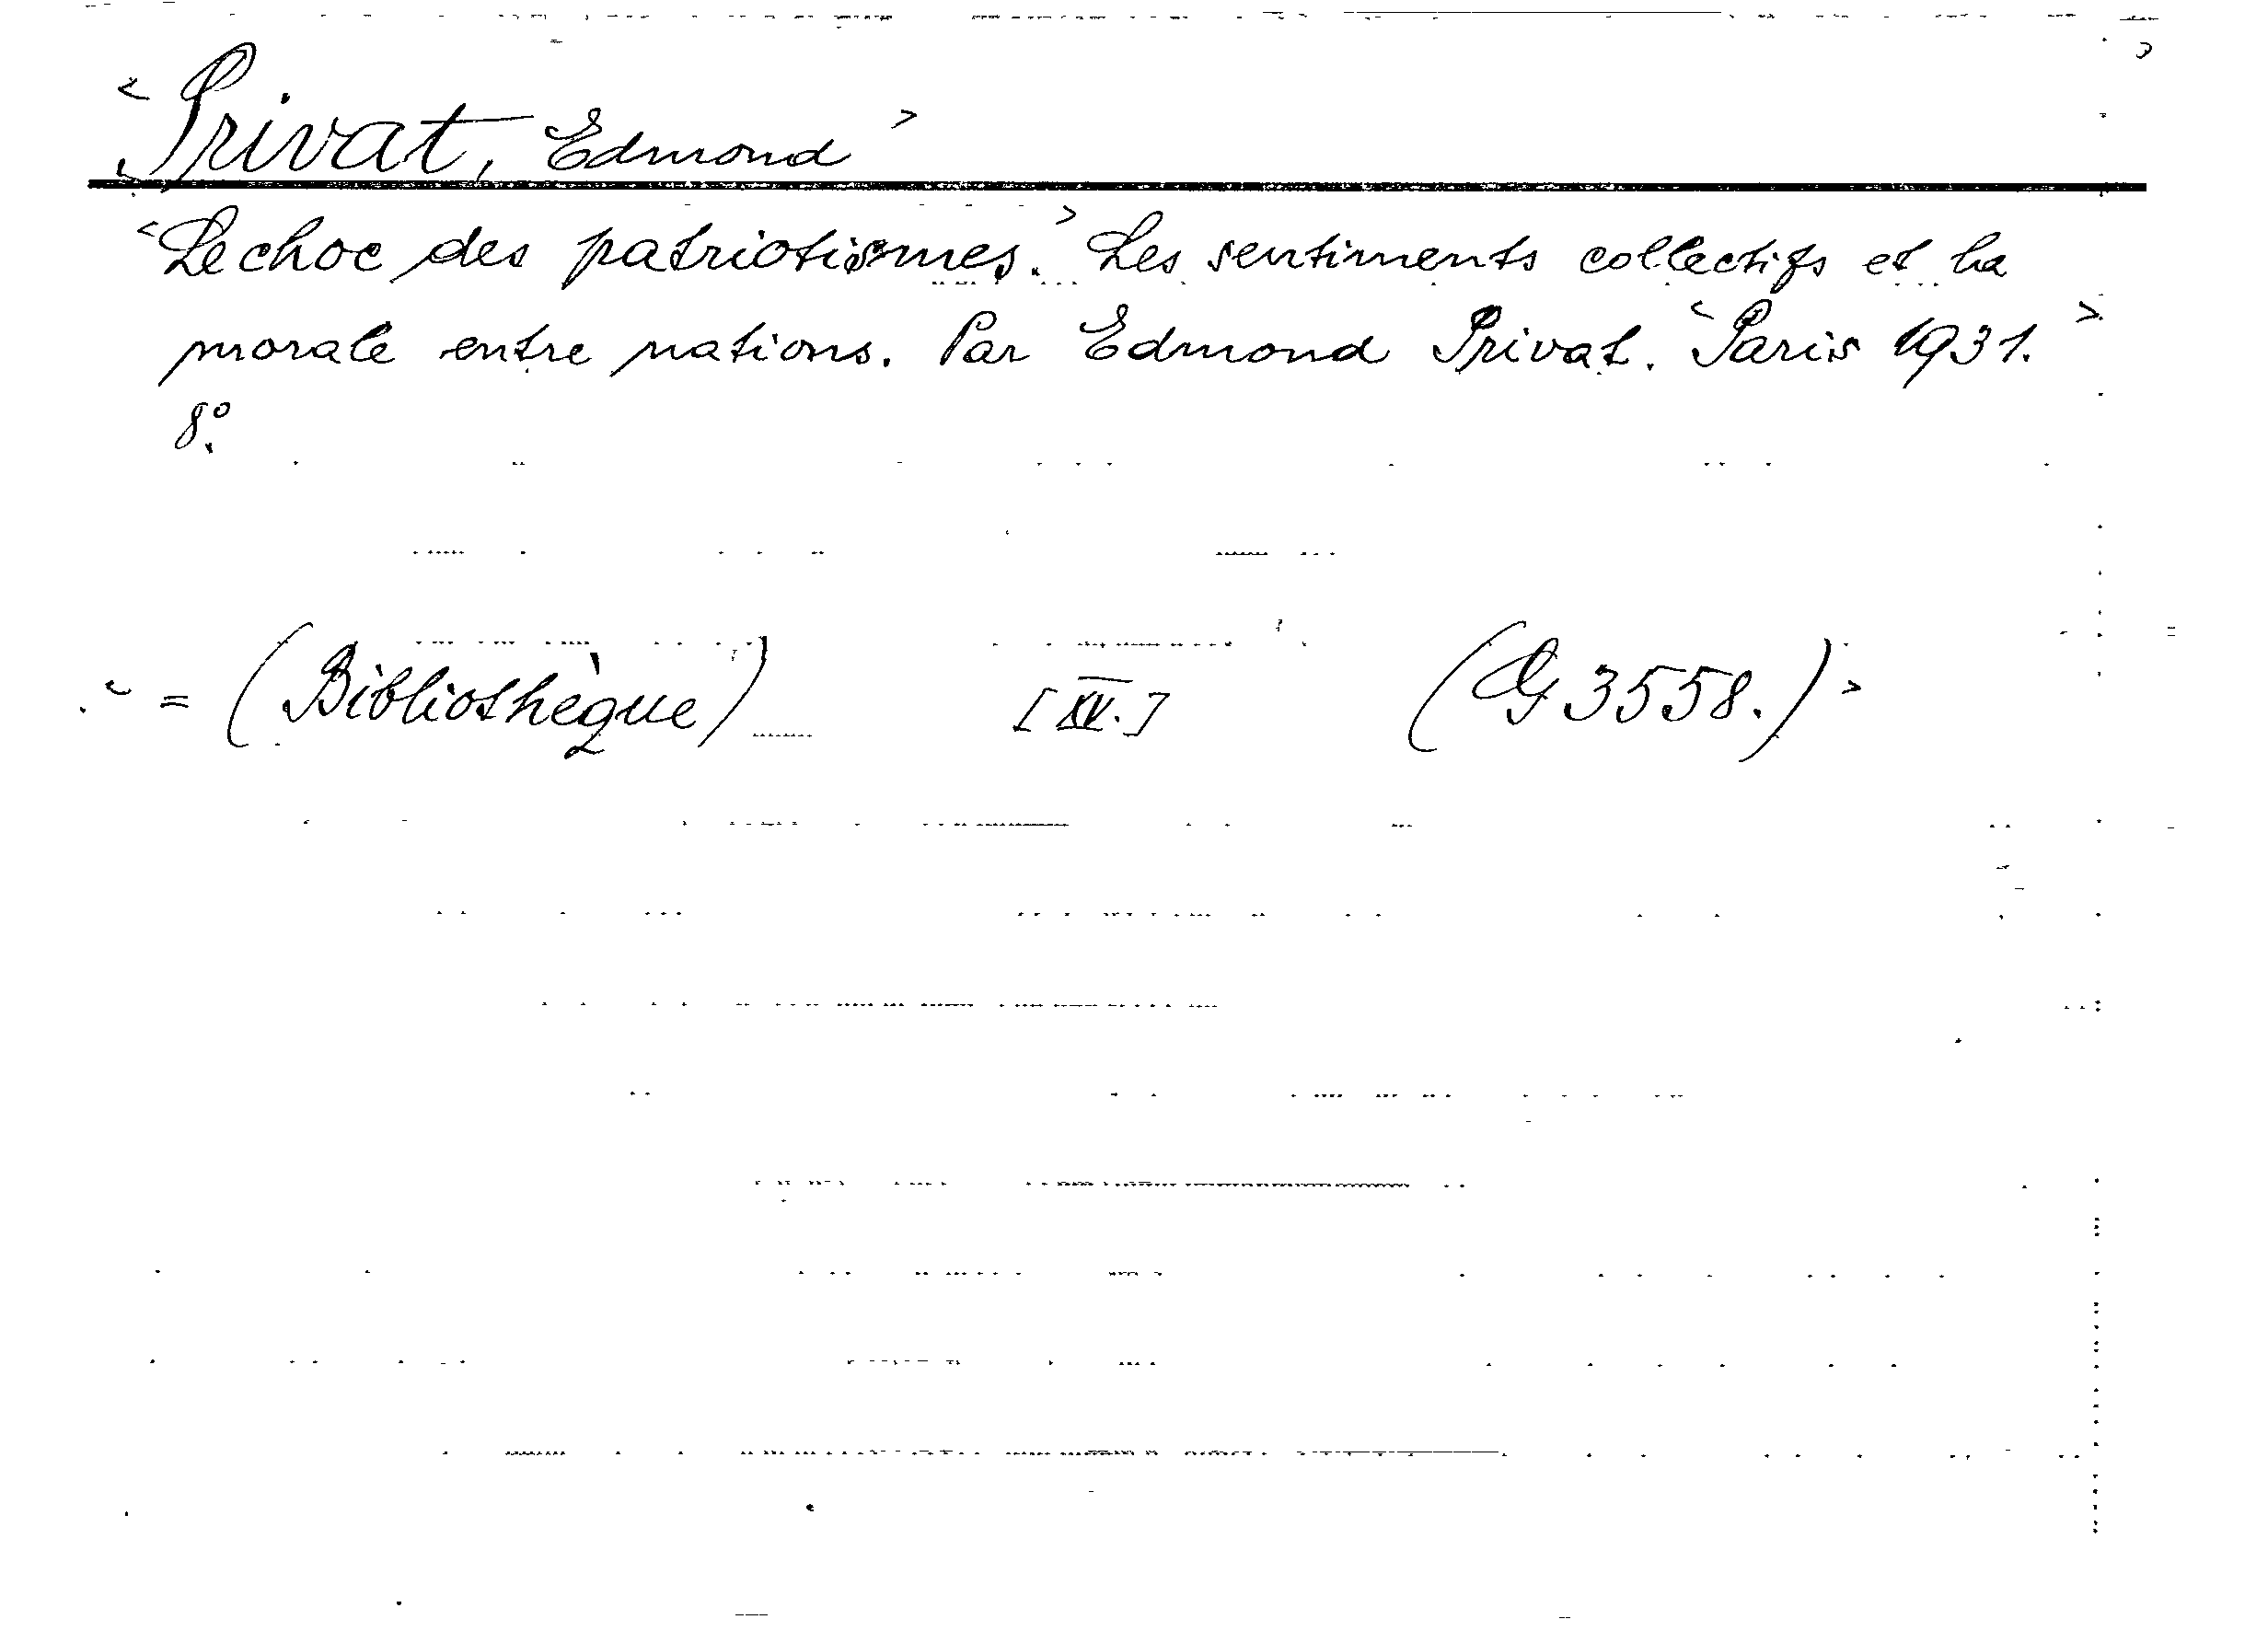 < Privat, Edmond >
< Le choc des patriotismes. > Les sentiments collectifs et la
morale entre nations. Par Edmond Privat. < Paris 1931. >
8°.
< = (Bibliothèque) [XV.] (G 3558.) >